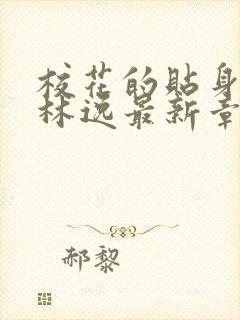 校花的贴身
林逸最新章
郝黎